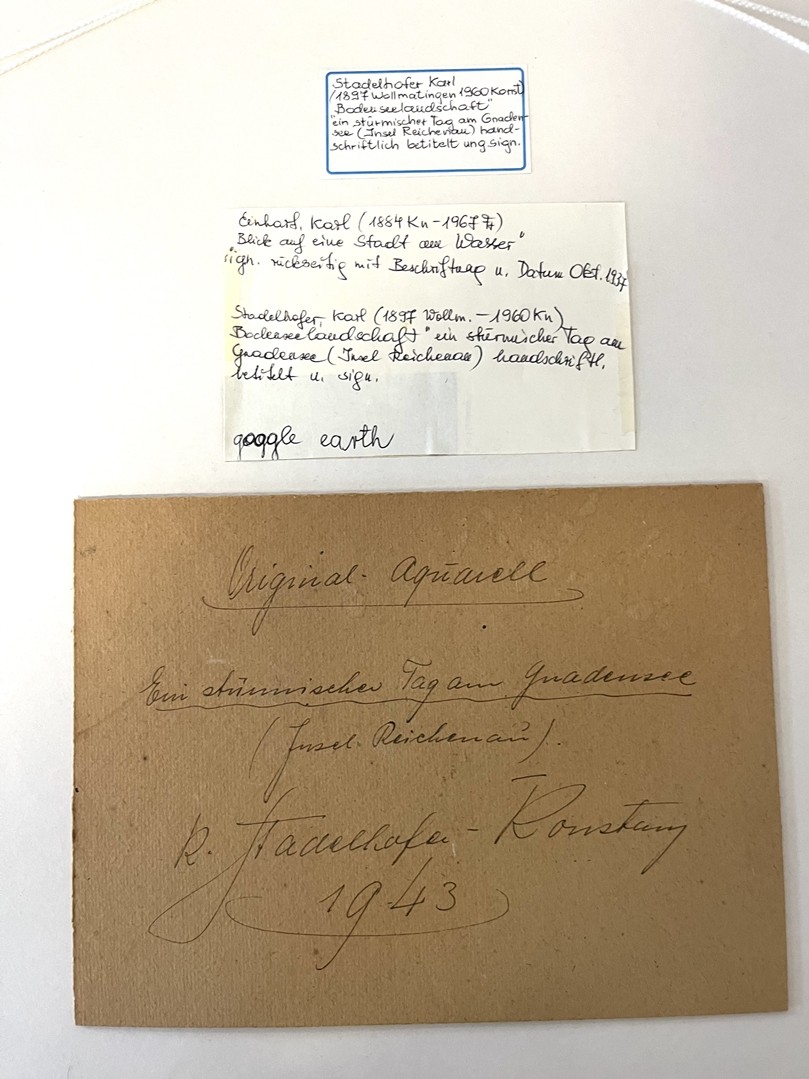 Stadelhofer Karl
(1897 Wollmatingen 1960 Konst)
Bodenseelandschaft"
"ein stürmischer Tag am Gnaden-
see (Insel Reichenau) hand-
schriftlich betitelt und sign.
Einhart, Karl (1884 Kn - 1967 )
Blick auf eine Stadt am Wasser"
sign. rückseitig mit Beschriftung u. Datum Okt. 1937
Stadelhofer, Karl (1897 Wollm. - 1960 Kn)
Bodenseelandschaft" ein stürmischer Tag am
Gnadensee (Insel Reichenau) handschriftl.
betitelt u. sign.
goggle earth
Original-Aquarell
Ein stürmischer Tag am Gnadensee
(Insel Reichenau).
K. Stadelhofer - Konstanz
1943